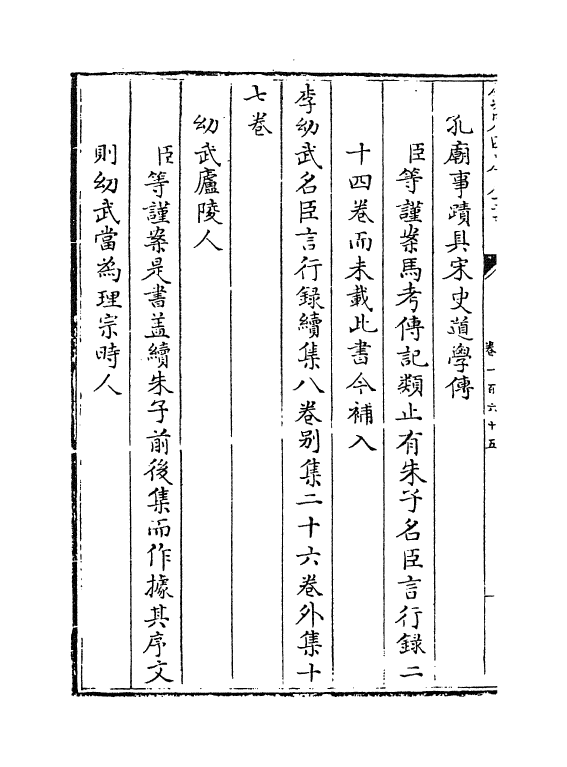 卷一百六十五
孔廟事蹟具宋史道學傳
臣等謹案馬考傳記類止有朱子名臣言行録二
十四卷而未載此書今補入
李幼武名臣言行録續集八卷别集二十六卷外集十
七卷
幼武廬陵人
臣等謹案是書盖續朱子前後集而作據其序文
則幼武當為理宗時人